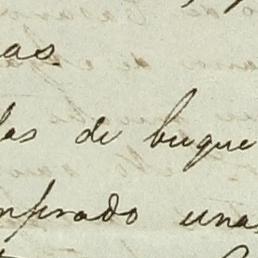 as.
las de buque
nperado unas